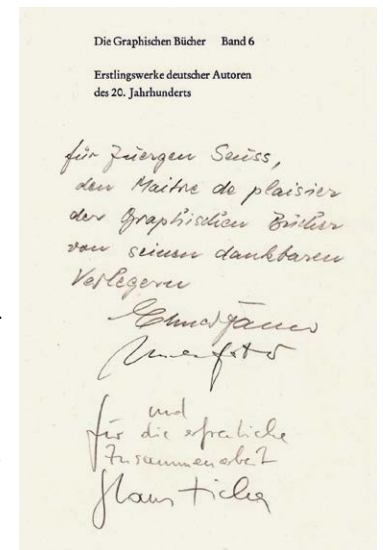 Die Graphischen Bücher Band 6
Erstlingswerke deutscher Autoren
des 20. Jahrhunderts
für Juergen Seuss,
den Maitre de plaisier
der Graphischen Bücher
von seinen dankbaren
Verlegern
und
für die erfreuliche
Zusammenarbeit
Hans Ticha